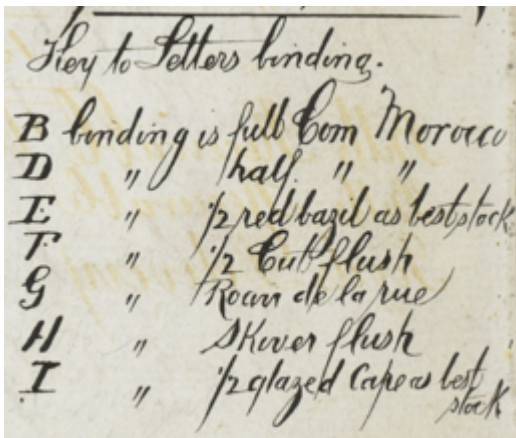 Key to Letters binding.
B binding is full Com Morocco
D " half. " "
E " 1/2 red bazil as best stock
F " 1/2 Cut flush
G " Roan de la rue
H " Skiver flush
I " 1/2 glazed Cape as best
stock